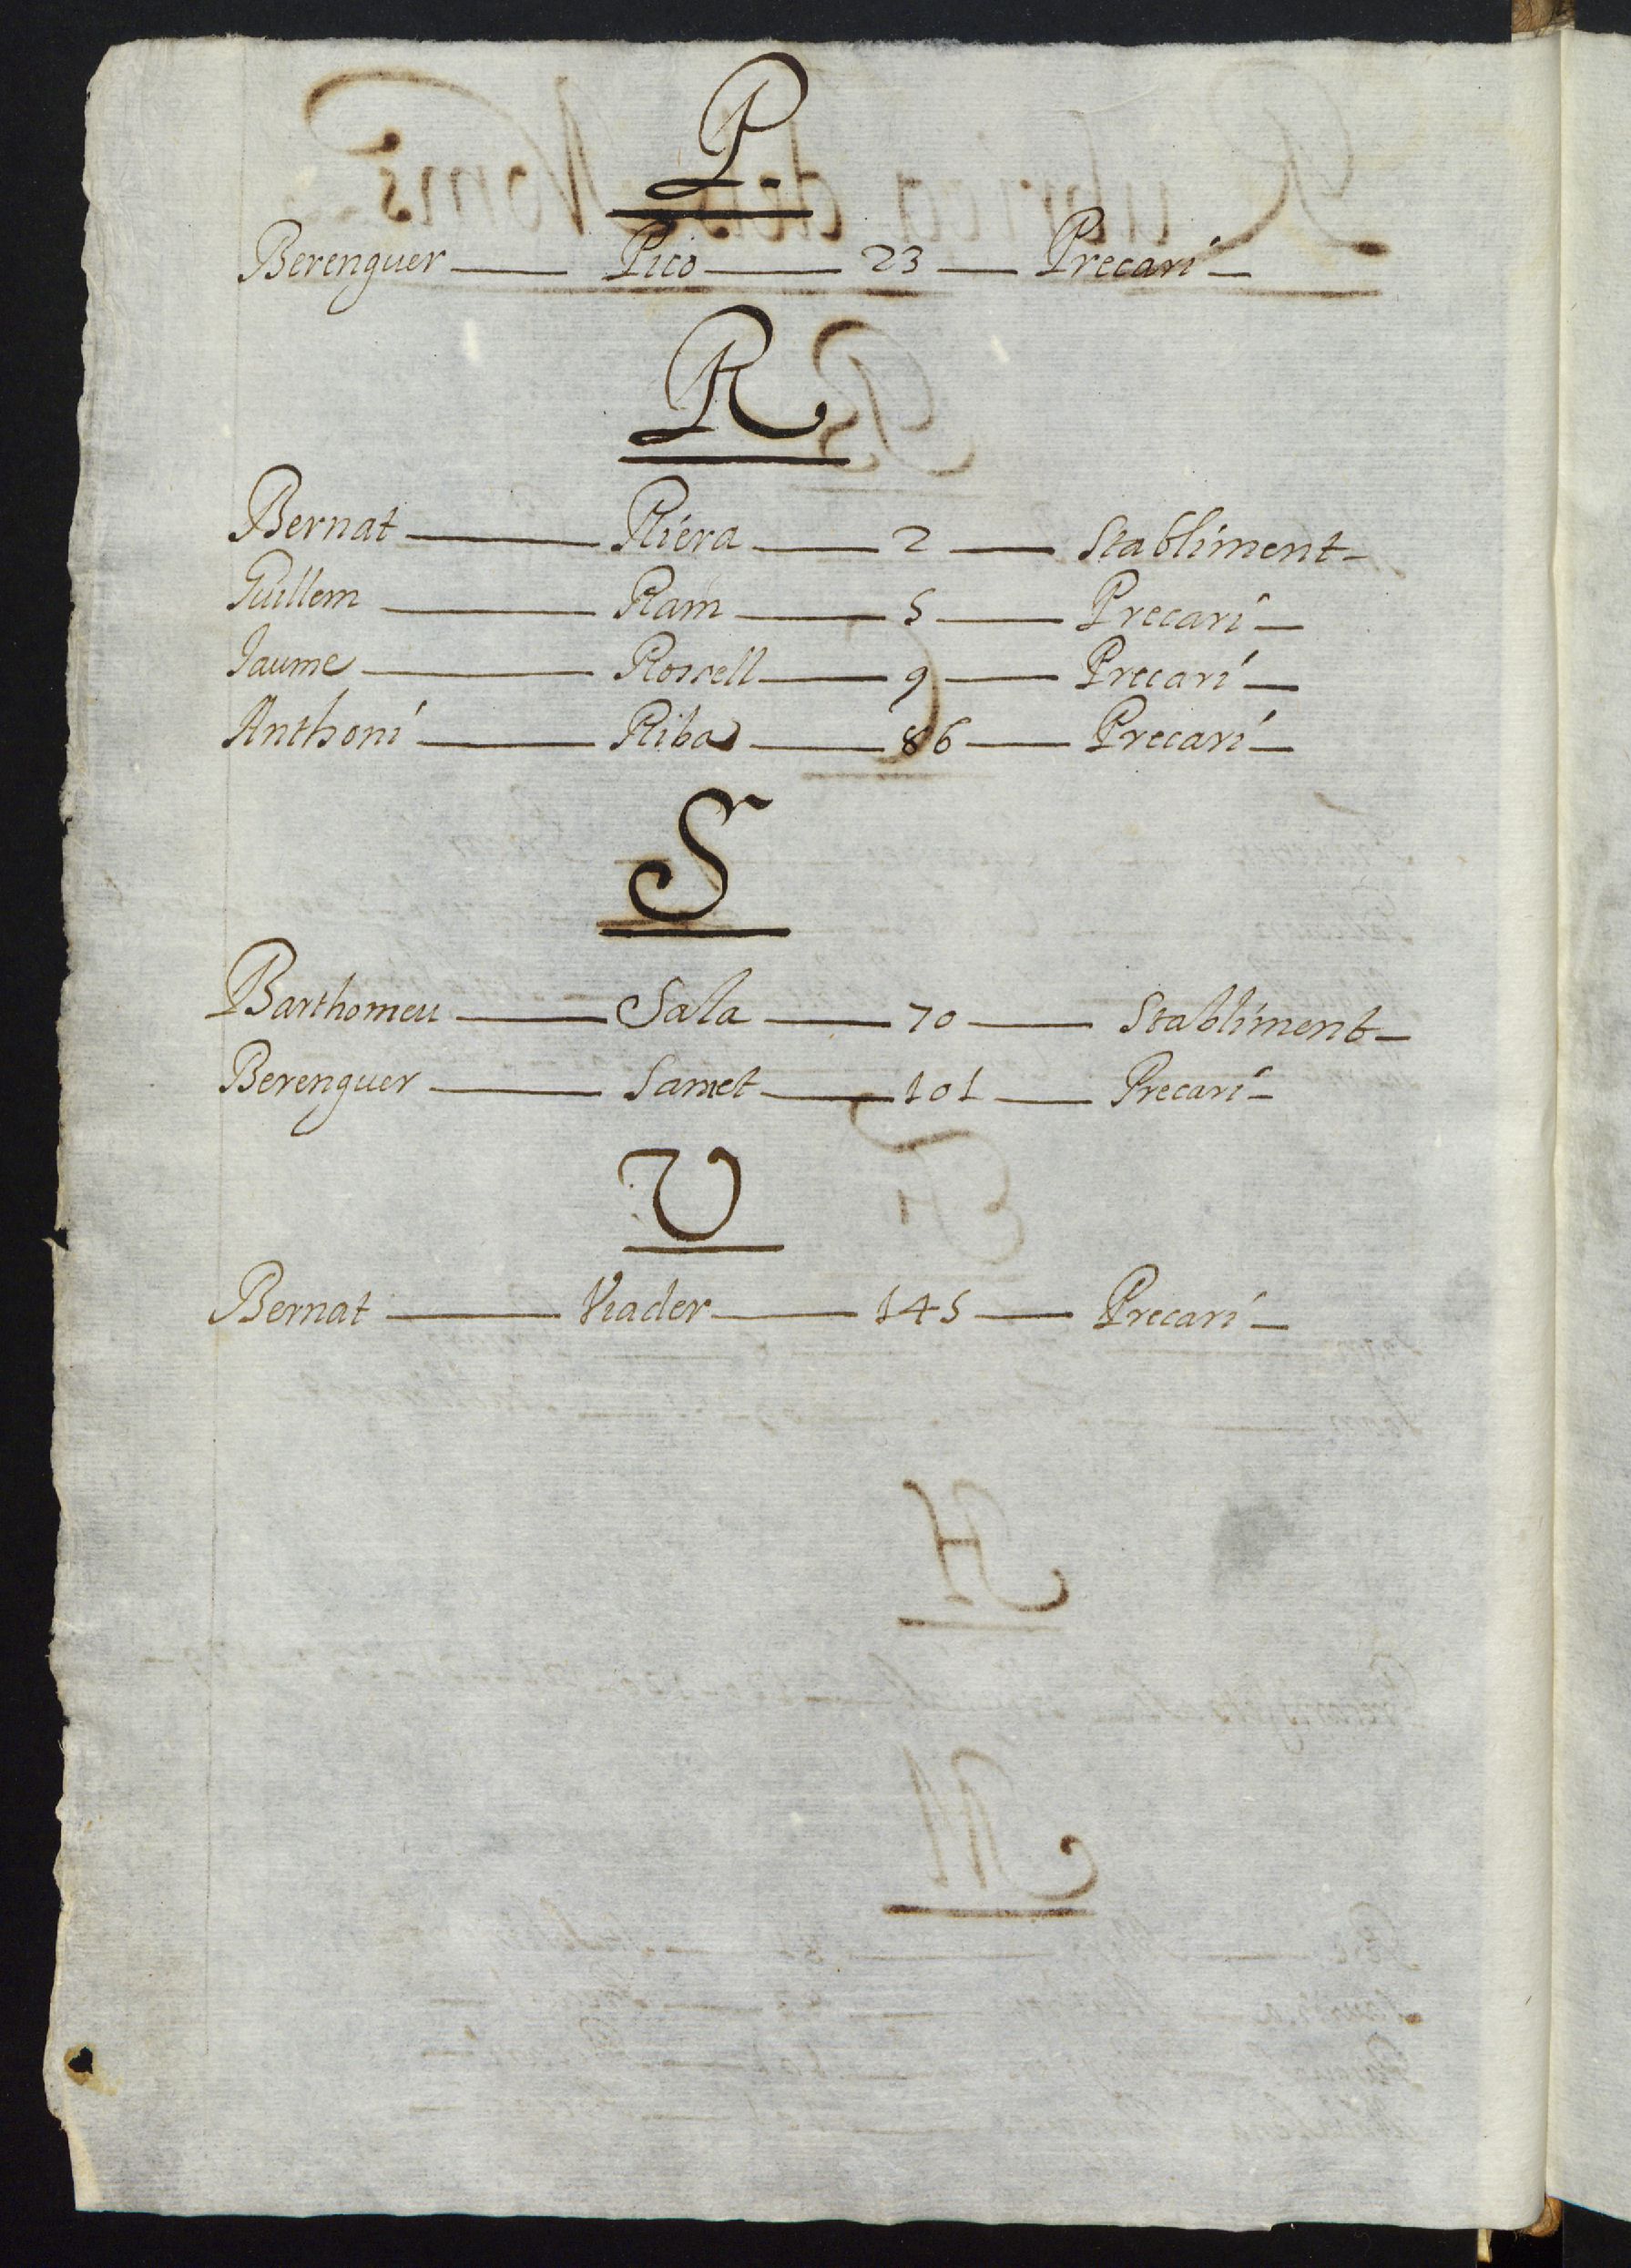 P
Berenguer — Pico — 23 — Precari —
R
Bernat — Riera — 2 — Stabliment —
Guillem — Ram — 5 — Precari —
Jaume — Rossell — 9 — Precari —
Anthoni — Riba — 86 — Precari —
S
Barthomeu — Sala — 70 — Stabliment —
Berenguer — Samet — 101 — Precari —
V
Bernat — Viader — 145 — Precari —